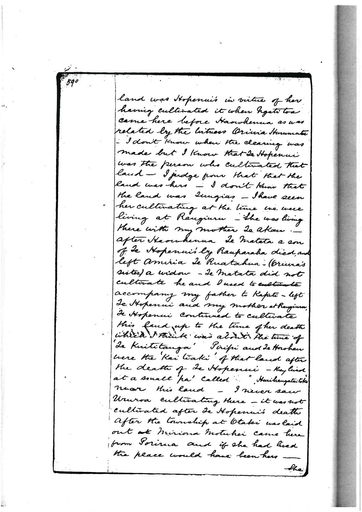 890
land was Hopenui's in virtue of her
having cultivated it when Ngati toa
came here before Haowhenua as was
related by the witness Oriwia Hurumutu
- I don't know when the clearing was
made but I know that Te Hopenui
was the person who cultivated that
land - I judge from that that the
land was hers - I don't know that
the land was Tungia's - I have seen
her cultivating at the time we were
living at Rangiuru - She was living
there with my mother Te Akau -
after Haowhenua Te Matata a son
of Te Hopenui's by Rauparaha died, and
left Amiria Te Ruatahui - (Oriwia's
sister) a widow - Te Matata did not
cultivate he and I used to
accompany my father to Kapiti - left
Te Hopenui and my mother at Rangiuru,
Te Hopenui continued to cultivate
this land up to the time of her death
which I think was about the time of
Te Kuititanga Piripi and Te Hoohou
were the 'Kai tiaki' of that land after
the death of Te Hopenui - they lived
at a small 'pa' called
near this land - I never saw
Ururoa cultivating there - it was not
cultivated after Te Hopenui's death
after the township at Otaki was laid
out at Miriona Motuhei came here
from Porirua and if she had lived
the place would have been hers -
She